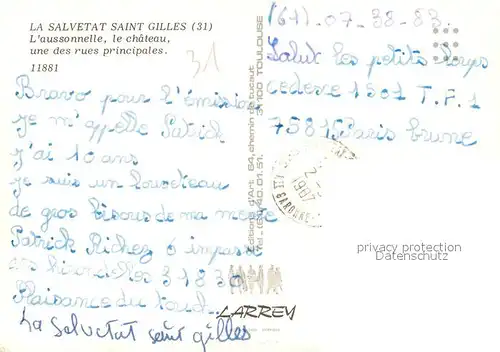 LA SALVETAT SAINT GILLES (31)
L'aussonnelle, le château,
une des rues principales.
11881
31
Bravo pour l'émission
je m'appelle Patrick
j'ai 10 ans
je suis un louveteau
de gros bisous de ma
Patrick Richez 6 impasse
hirondelles 31830
Plaisance du touch
La Salvetat saint gilles
(61).07-38-83
Salut les petits loups
cedexe 1501 T.F.1
75815 Paris brune
Editions d'Art 64, chemin de tucaut
TOULOUSE
1987
GARONNE
LARREY
privacy protection
Datenschutz